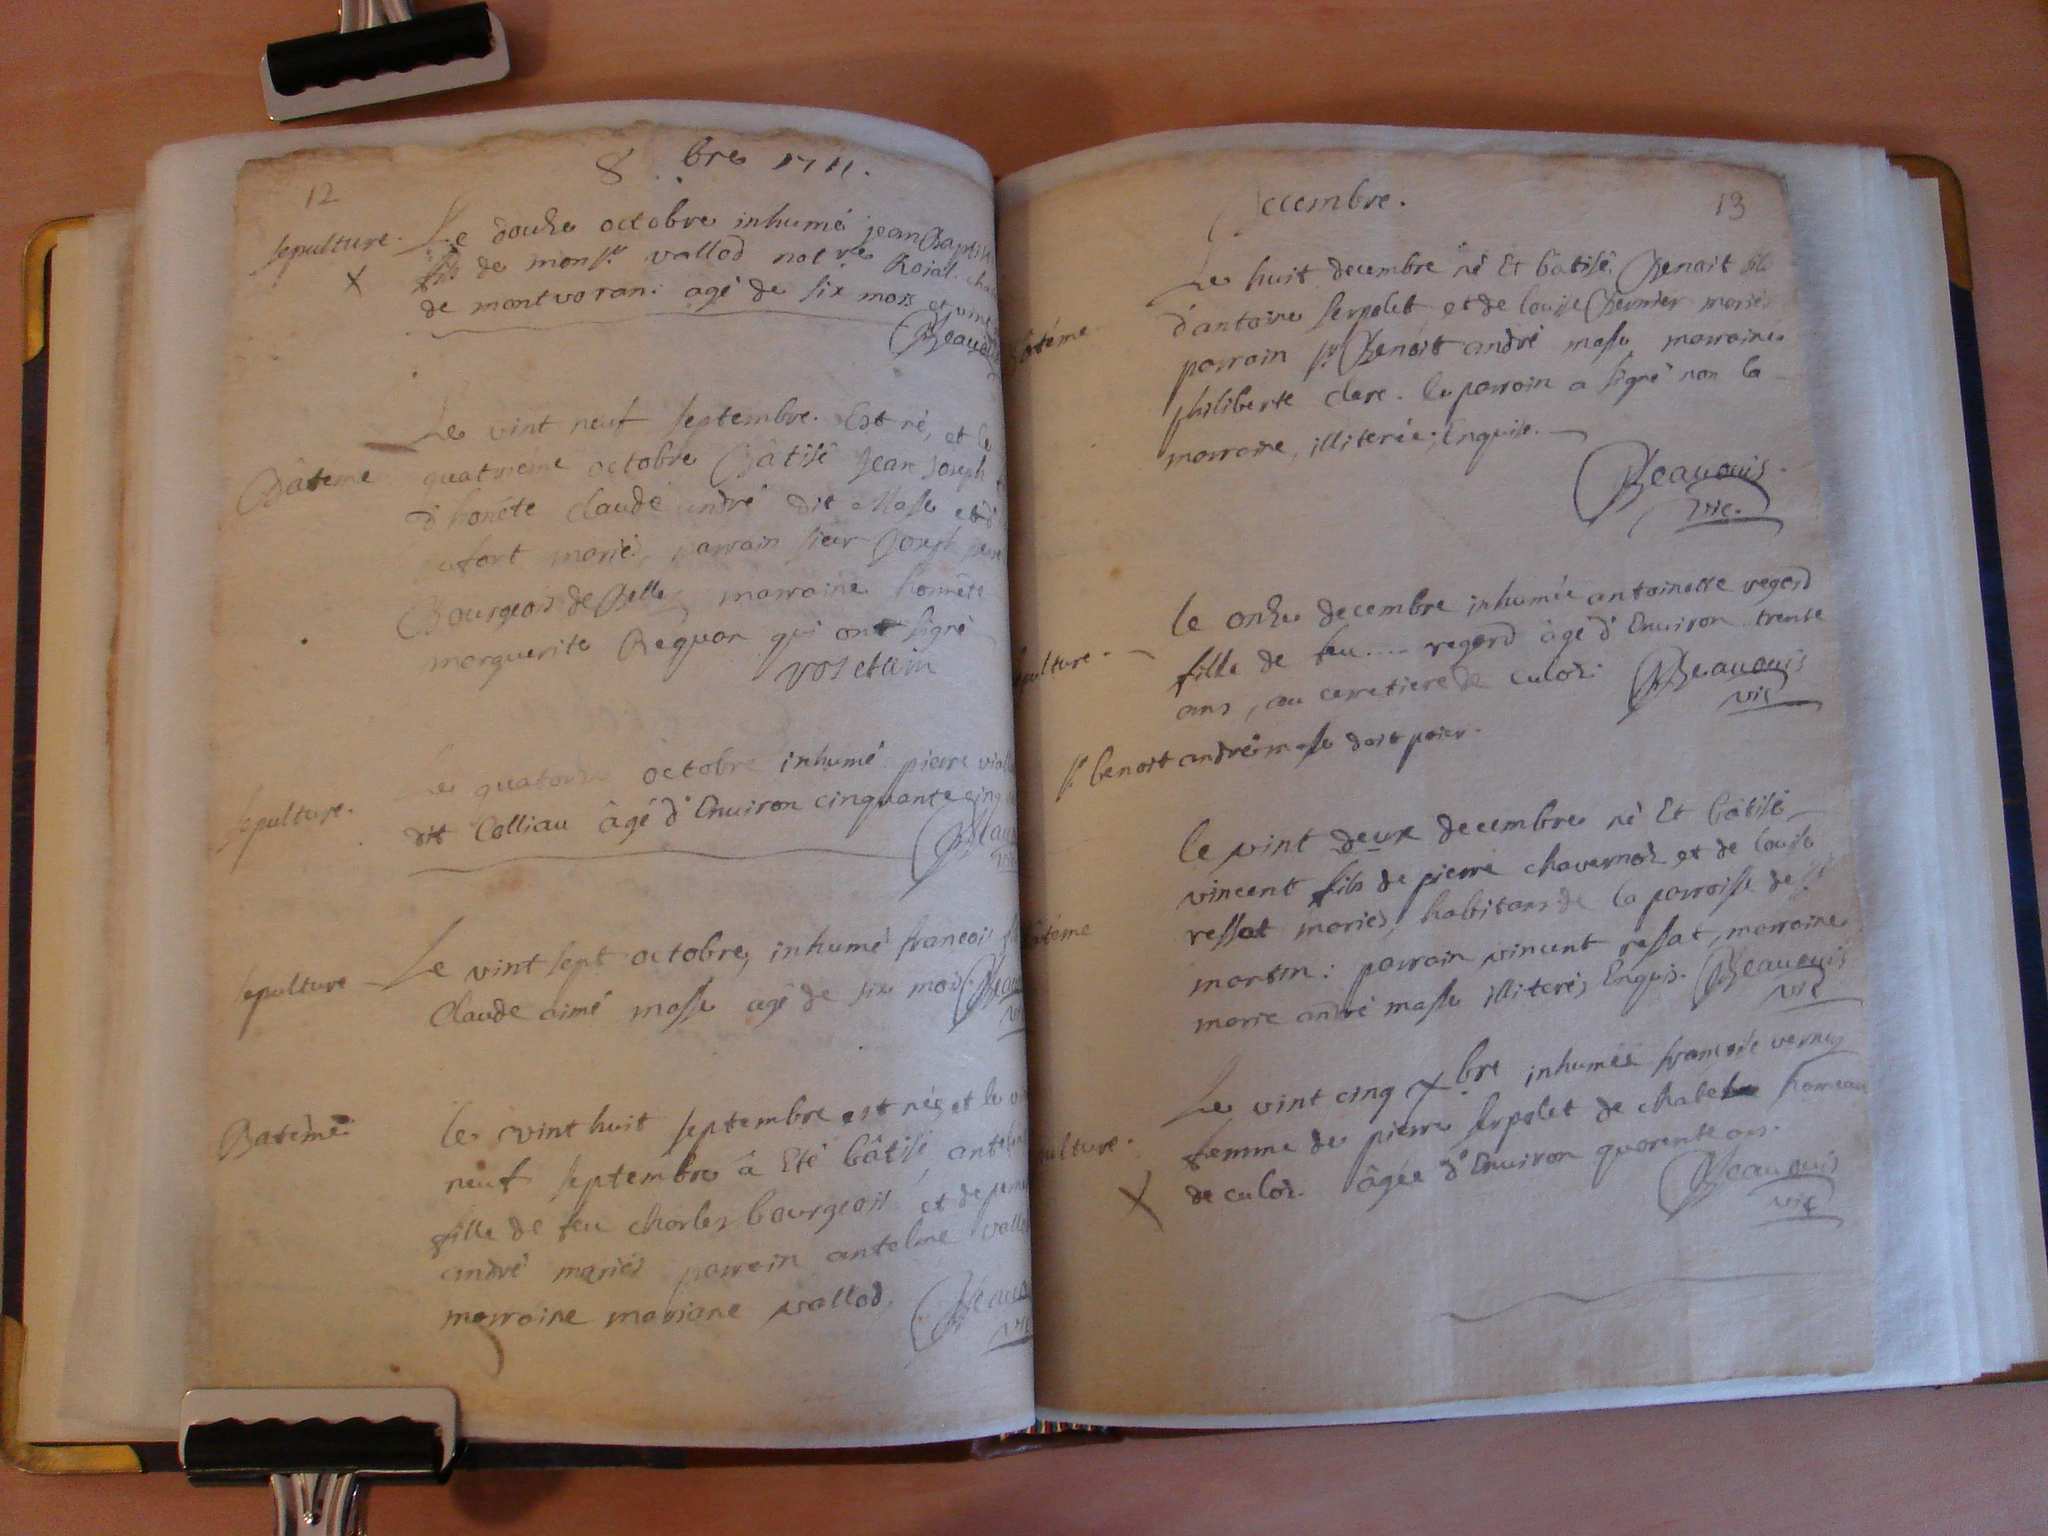 12
8.bre 1711.
sepulture. Le douze octobre inhumé jean Baptis
fils de mons.r vallod not.re Roial
de montvoran: agé de six mois et
Beauouis
Le vint neuf septembre. Est né, et le
Batéme quatriéme octobre Bâtisé Jean Joseph
d'honéte claude andré dit Masse et d
marié, parrain sieur Joseph
Bourgeois de Belley marraine honnéte
marguerite Requon qui ont signé
vosctain
Le quatorze octobre inhumé pierre
sepulture. dit Colliau âgé d'Environ cinquante cinq
sepulture Le vint sept octobre, inhumé francois
Claude aimé masse agé de six mois. Beau
vic
Batéme le vint huit septembre est née, et le
neuf septembre â Eté bâtisé,
fille de feu charles bourgeois et de
andré mariés parrein antelme vallo
marraine mariane vallod. Beauou
vic
13
ecembre.
Le huit decembre né Et bâtisé. Benoit fils
batéme d'antoine serpolet et de louise Bernier mariés
parrain s.r Benoît andré masse marraine
philiberte clere. le parrain a signé non la
marraine, illiterée; Enquise.
Beauouis.
vic.
le onze decembre inhumée antoinette regard
sepulture. fille de feu.... regard âgé d'Environ trente
ans, au cemetiere de culoz: Beauouis
vic
s.r benoit andré masse doit paier.
le vint deux decembre né Et bâtisé
vincent fils de pierre chavernoz et de louise
batéme ressat mariés, habitans de la parroisse de S.t
martin: parrain vincent ressat, marraine
marie andré masse illiterés Enquis. Beauouis
vic
Le vint cinq x.bre inhumée francoise
sepulture. femme de pierre serpolet de hameau
de culoz. âgée d'Environ quarente ans.
Beauouis
vic